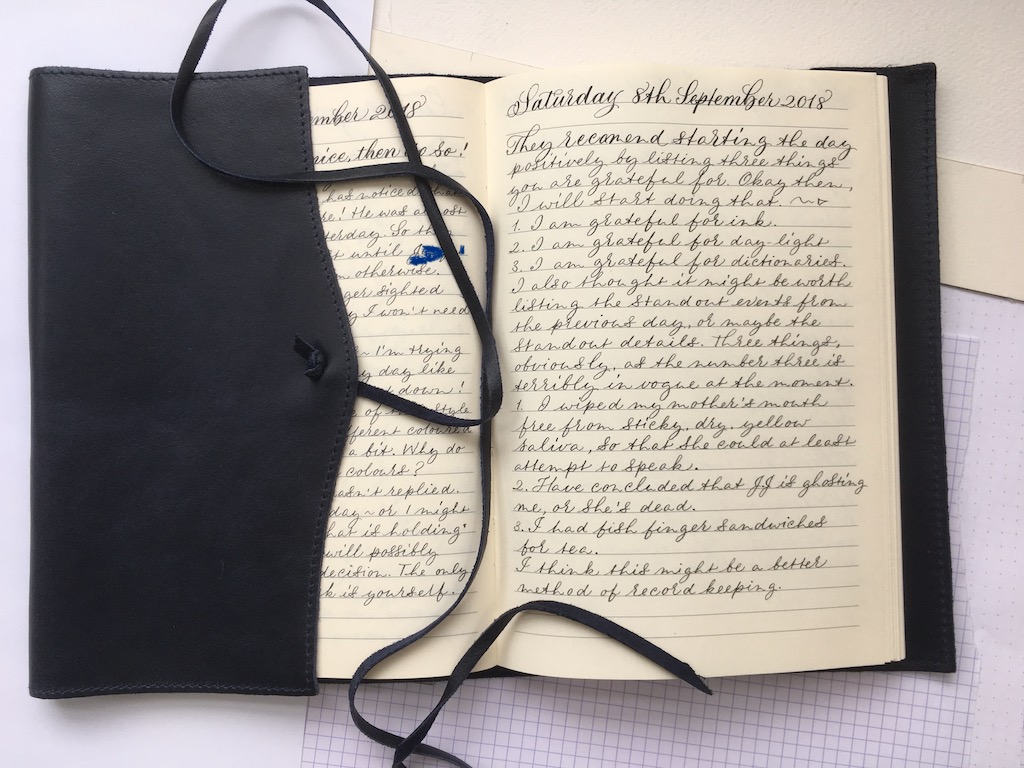 ember 2018
nice, then do so!
has noticed that
e! He was almost
terday. So then
t until
n otherwise.
ger sighted
y I won't need
I'm trying
y day like
t down!
e of the style
fferent coloured
a bit. Why do
colours?
asn't replied.
day~or I might
hat is holding
will possibly
decision. The only
k is yourself.
Saturday 8th September 2018
They recomend starting the day
positively by listing three things
you are grateful for. Okay then,
I will start doing that.
1. I am grateful for ink.
2. I am grateful for day-light
3. I am grateful for dictionaries.
I also thought it might be worth
listing the standout events from
the previous day, or maybe the
standout details. Three things,
obviously, as the number three is
terribly in vogue at the moment.
1. I wiped my mother's mouth
free from sticky, dry, yellow
saliva, so that she could at least
attempt to speak.
2. Have concluded that JJ is ghosting
me, or she's dead.
3. I had fish finger sandwiches
for tea.
I think this might be a better
method of record keeping.